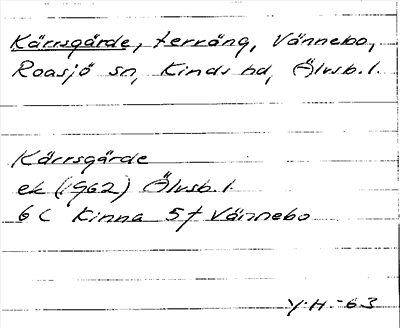 Kärrsgärde, terräng, Vännebo,
Roasjö sn, Kinds hd, Älvsb. l.
Kärrsgärde
ek (1962) Älvsb. l.
6 C Kinna 5 f Vännebo
Y. H. -63